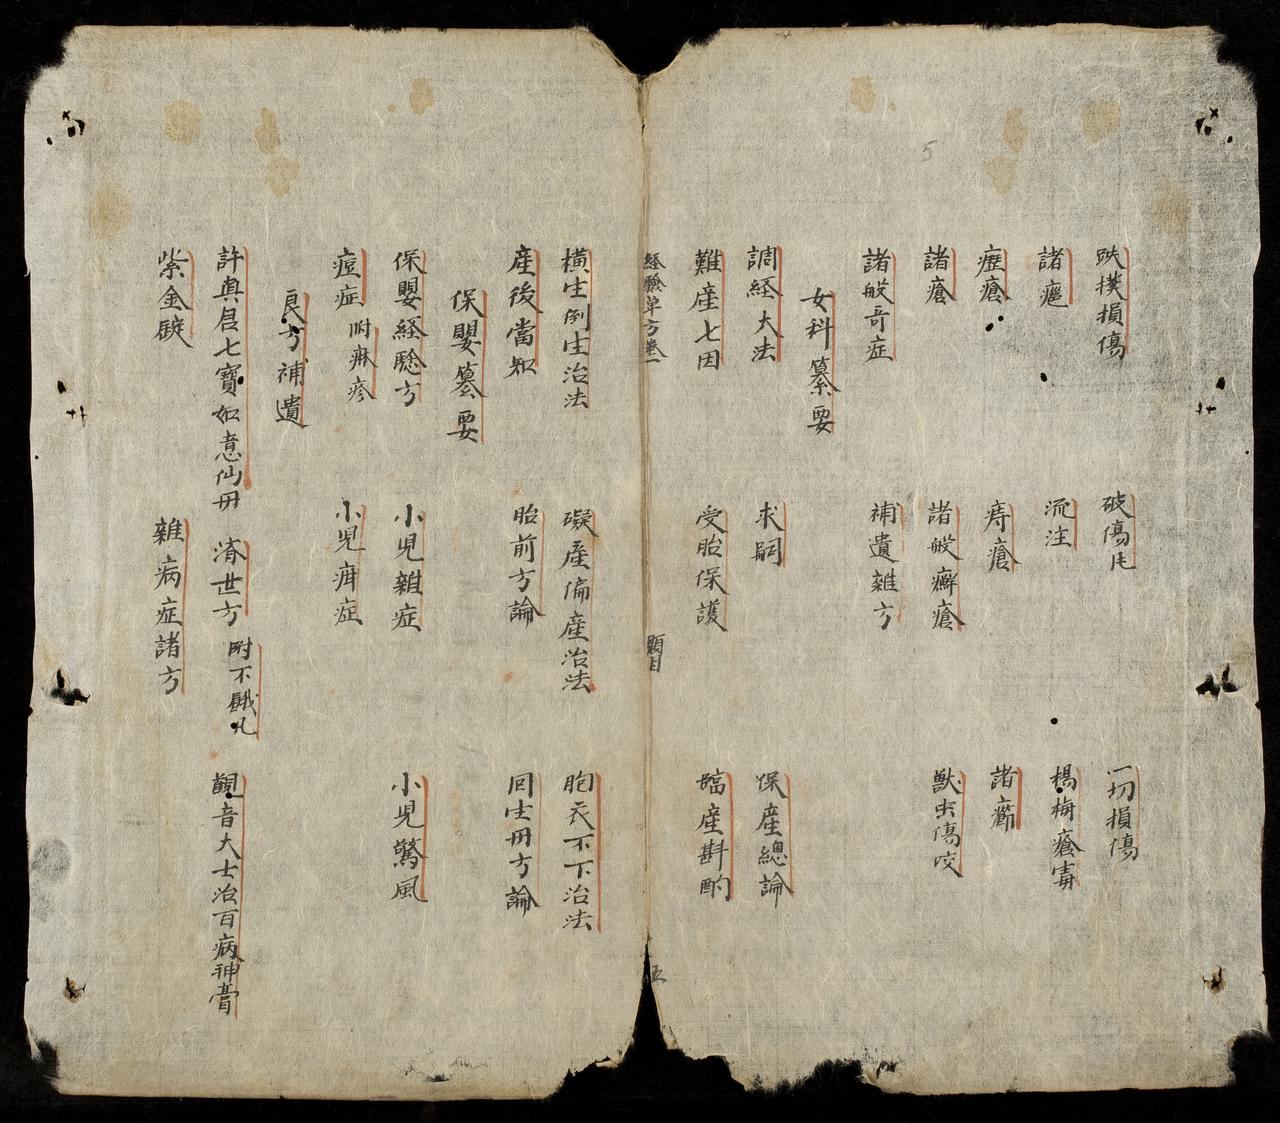 跌撲損傷 破傷 一切損傷
諸瘟 流注 楊梅瘡毒
瘂瘡 痔瘡 諸癤
諸瘡 諸般癬瘡 獸虫傷咬
諸般奇症 補遺雜方
女科纂要
調経大法 求嗣 保産總論
難産七因 受胎保護 臨産斟酌
経驗單方卷一 題目 五
橫生倒生治法 礙産偏産治法 胞衣不下治法
産後當知 胎前方論 回生丹方論
保嬰纂要
保嬰経驗方 小児雜症 小児驚風
痘症 附痳疹 小児疳症
良方補遺
許真君七寶如意仙丹 済世方 附不餓丸 觀音大士治百病神膏
紫金錠 雜病症諸方
5